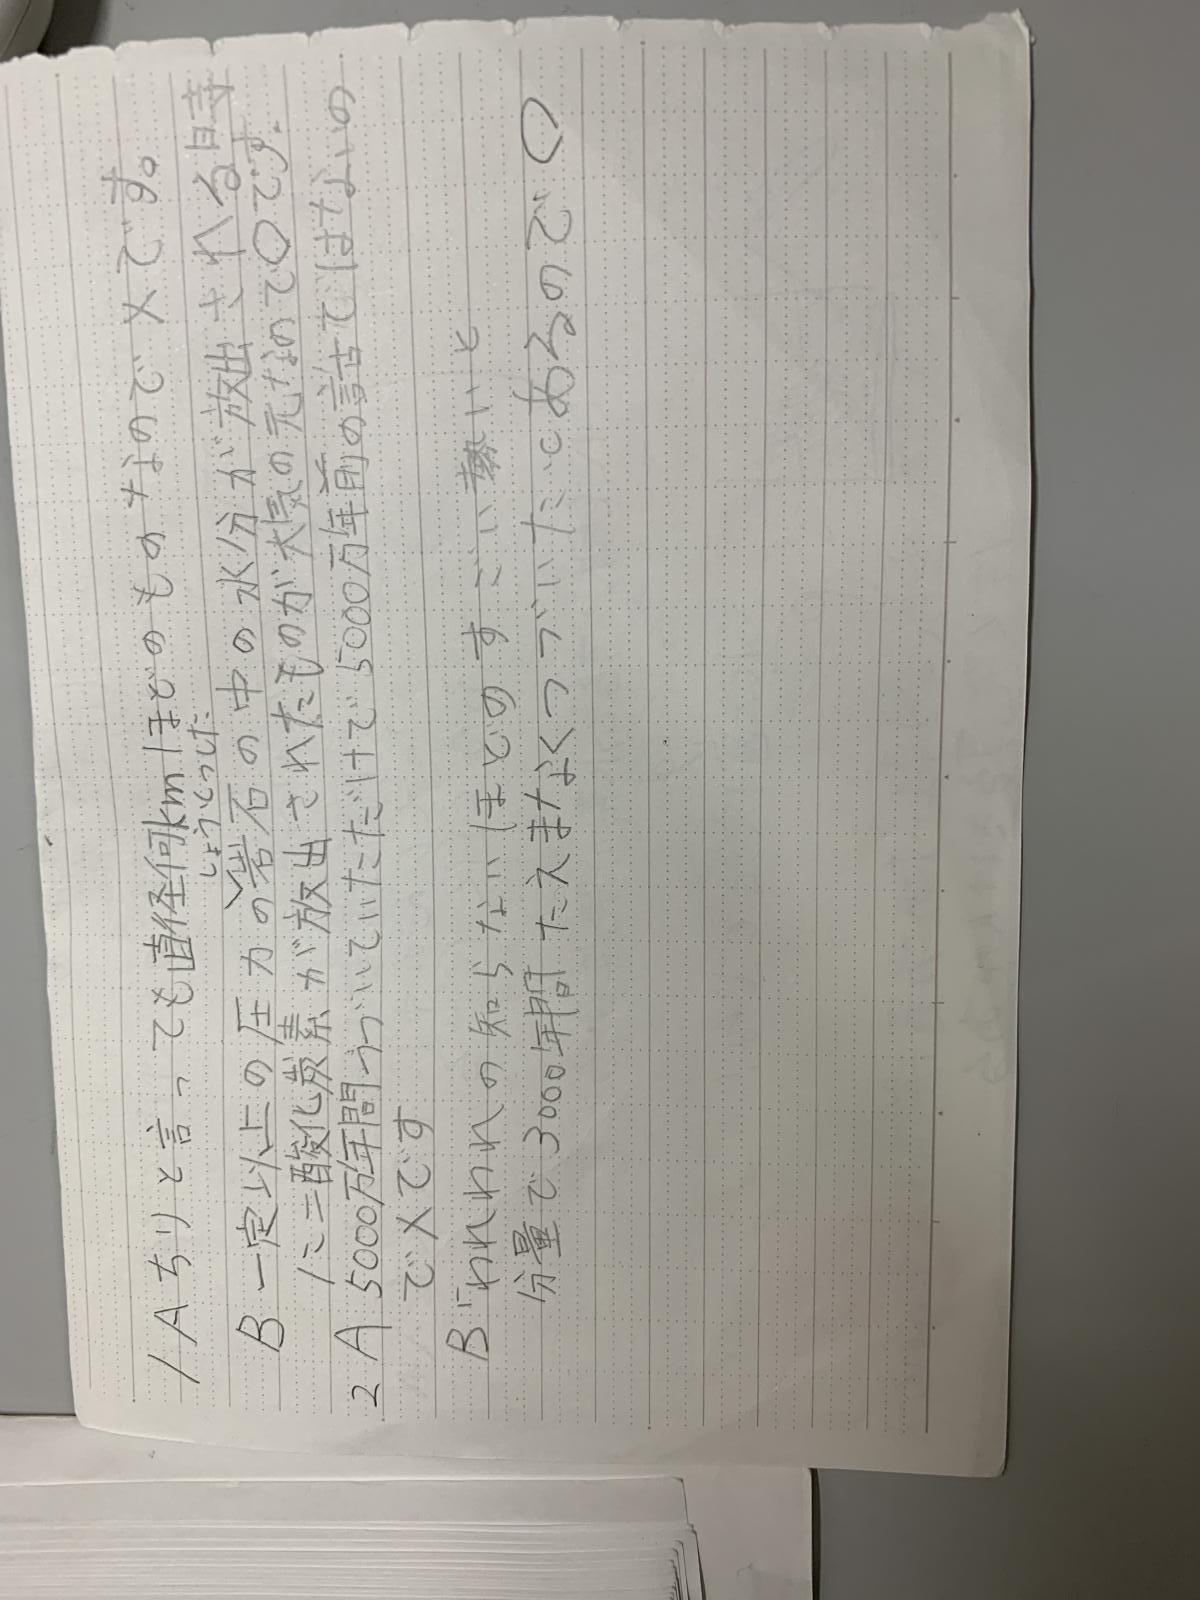 1 A ちりと言っても直径何kmほどのものもなので×です。
しょうとつした
B 一定以上の圧力の岩石の中の水分が放出される時
に二酸化炭素が放出されたものが大気の元なので○です。
2 A 5000万年間つづいていただけで5000万年前の話ではないの
で×です
B われわれの知らないほどのすごい勢いと
分量で3000年間たえまなくつづいたとあるので○